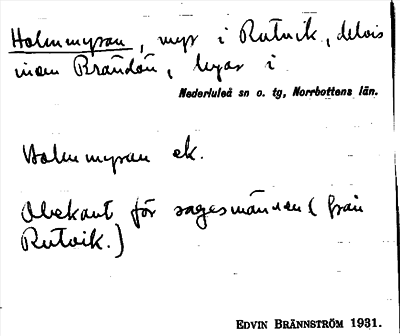 Holmmyran, myr i Rutvik, delvis
inom Brändön, byar i
Nederluleå sn o. tg, Norrbottens län.
Holmmyran ek.
Obekant för sagesmannen (från
Rutvik.)
EDVIN BRÄNNSTRÖM 1931.